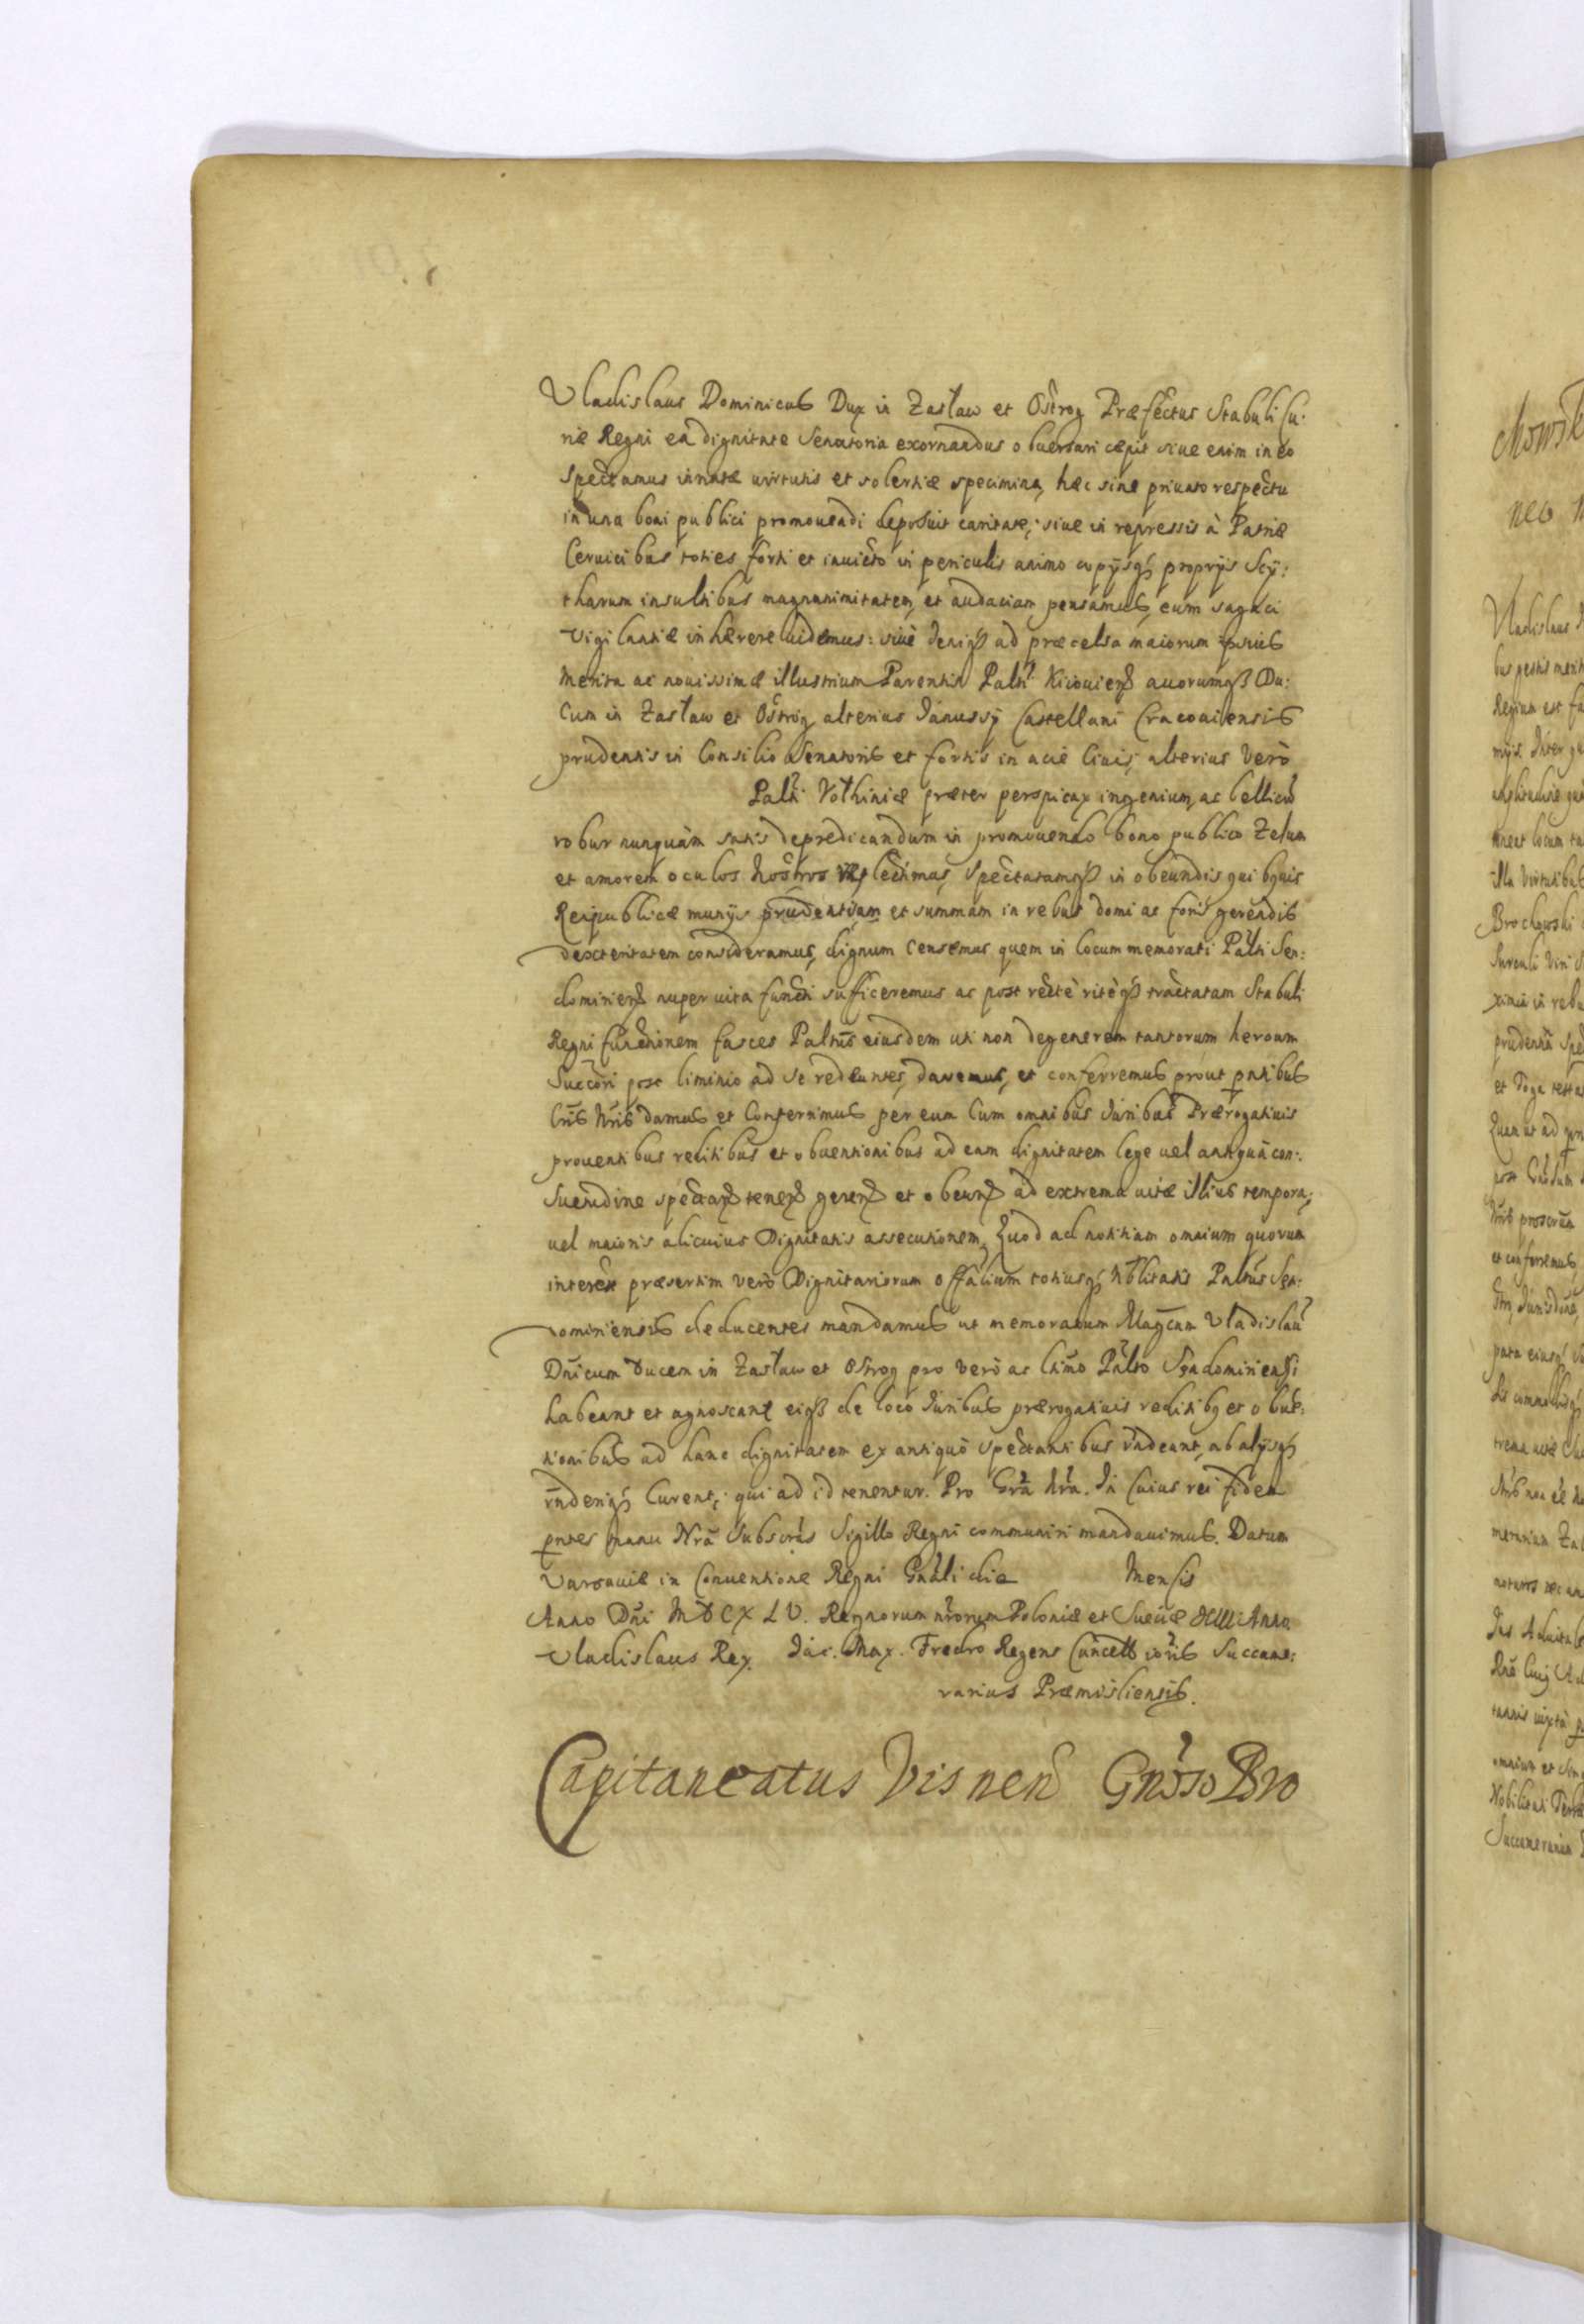 Vladislaus Dominicus Dux in Zasław et Ostrog Præfectus Stabuli Cu:
riæ Regni ea dignitate Senatoria exornandus obuersari cæpit siue enim in eo
Spectamus innatæ uirtutis et solertiæ specimina, hæc sine priuato respectu
in una boni publici promouendi deposuit caritate; siue in repressis à Patriæ
Ceruicibus toties forti et inuicto in periculis animo copijsq; proprijs Scÿ:
tharum insultibus magnanimitatem, et audaciam pensamus, eum sagaci
Vigilantiæ inhærere uidemus: siue deniq; ad præcelsa maiorum ipsius
Merita ac nouissimæ illustrium Parentis Palti Kiiouien̄ auorumq; Du:
Cum in Zasław et Ostrog alterius Janussij Castellani Cracouiensis
prudentis in Consilio Senatoris et fortis in acie Ciuis, alterius Verò
Palti Volhiniæ præter perspicax ingenium, ac bellicū
robur nunquàm satis depredicandum in promouendo bono publico Zelum
et amorem oculos Nostros reflectimus, Spectatamq; in obeundis quibquis
Reipublicæ munijs prudentiam et summam in rebus domi ac foris gerendis
dexteritatem consideramus, dignum Censemus quem in locum memorati Palti Sen:
domirien̄ nuper uita functi sufficeremus ac post rectè ritèq; tractatam Stabuli
Regni functionem fasces Paltūs eiusdem uti non degenerem tantorum heroum
Succori post liminio ad se redeuntes, daremus, et conferremus prout pntibus
Lris Nris damus et Conferrimus per eum Cum omnibus Juribus Prærogatiuis
prouentibus reditibus et obuentionibus ad eam dignitatem lege uel antiquâ con:
Suetudine spectan̄ tenen̄ geren̄ et obeun̄ ad extrema uitæ illius tempora,
uel maioris alicuius Dignitatis assecutionem, Quod ad notitiam omnium quorum
interest præsertim verò Dignitariorum offalium totiusq; Nblitatis Paltūs Sen:
domiriensis deducentes mandamus ut memoratum Magcum Vladislaū
Dnicum Ducem in Zasław et Ostrog pro verò ac ltimo Palto Sendomiriensi
habeant et agnoscant eiq; de loco Juribus prærogatiuis reditibq et obuē:
tionibus ad hanc dignitatem ex antiquò spectantibus rndeant, ab alijsq;
rnderiq; Curent, qui ad id tenentur. Pro Gra Nra. In Cuius rei fidem
pntes manu Nrā Subscras Sigillo Regni communiri mandauimus. Datum
Varsauiæ in Conuentione Regni Gnāli die Mensis
Anno Dni MDCXLV. Regnorum nrorum Poloniæ et Sueciæ XIII Anno
Vladislaus Rex. Jac. Max. Fredro Regens Cancell ioris Succame:
rarius Præmisliensis.
Capitaneatus Visnen̄ Gnoso Bro